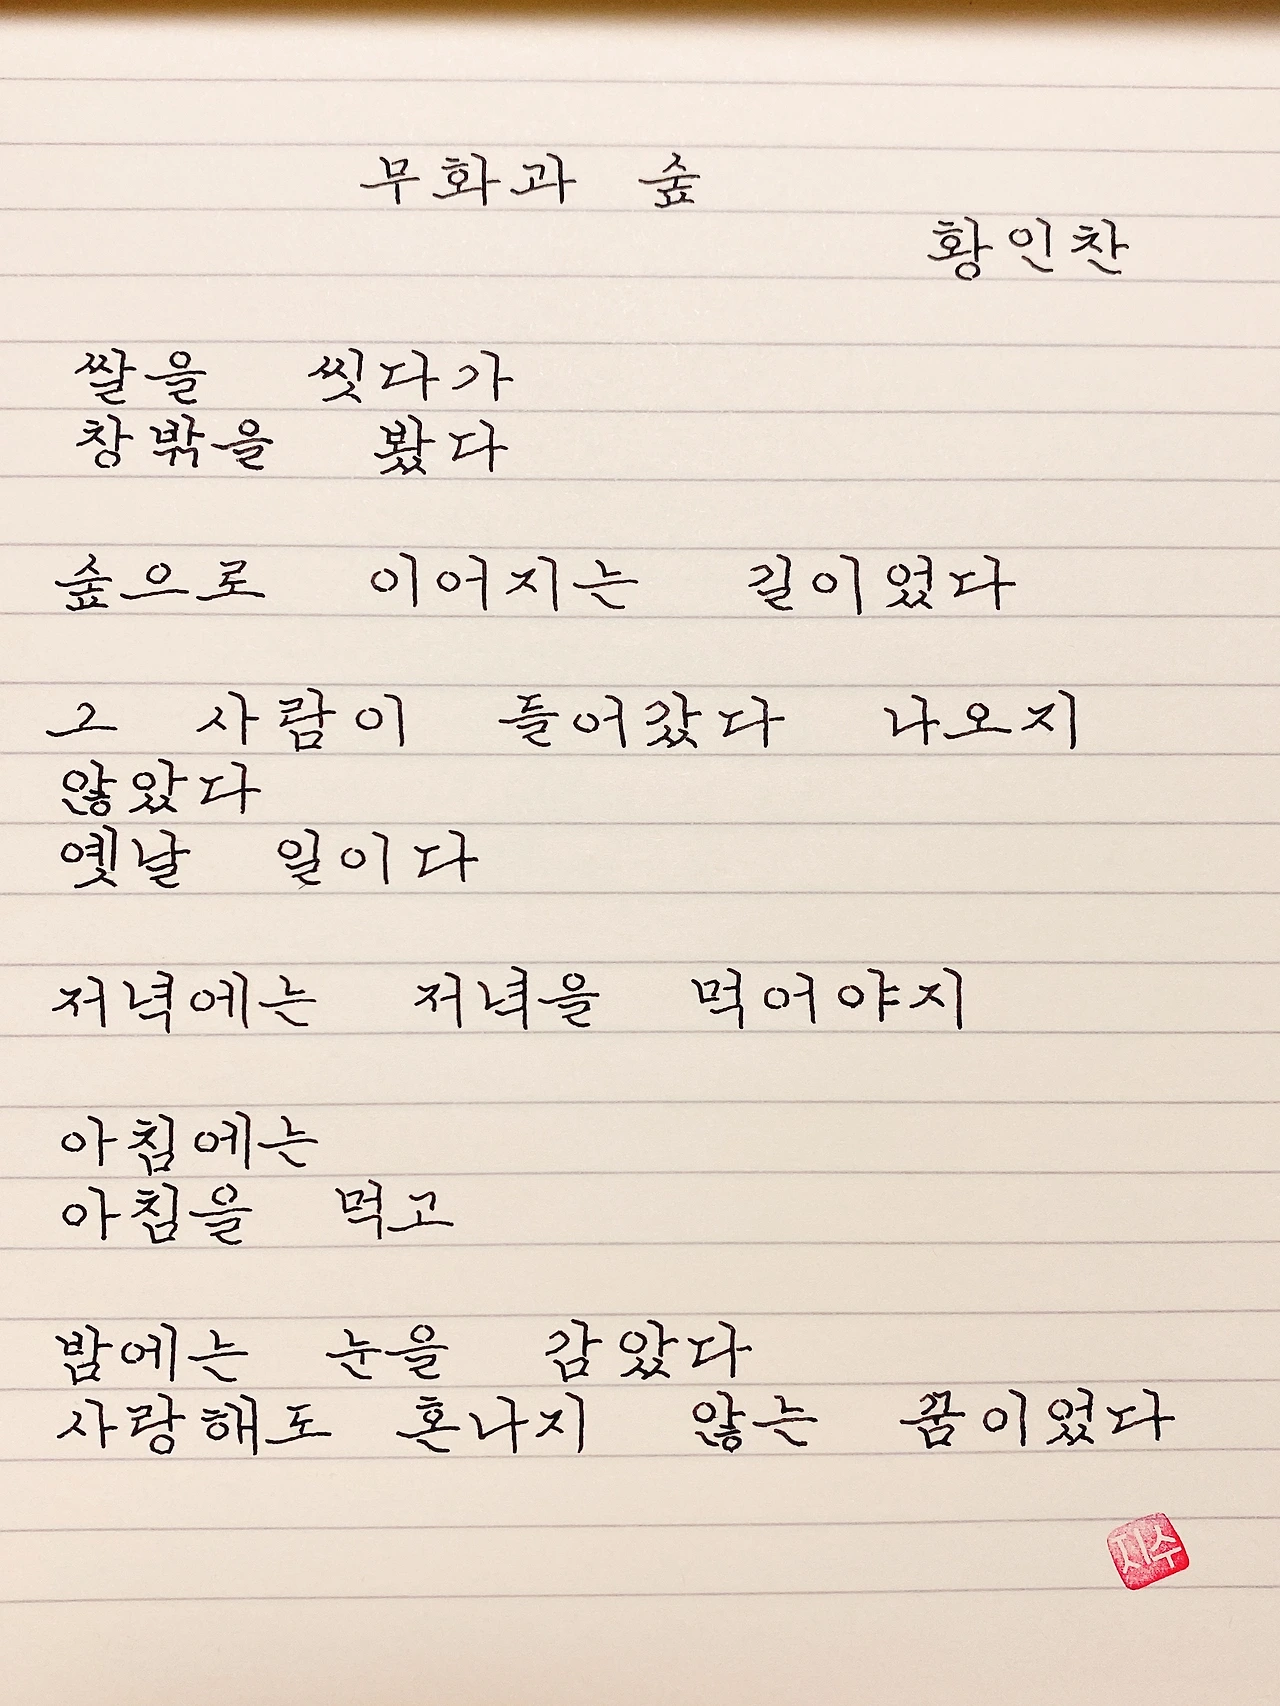 무화과 숲
황인찬
쌀을 씻다가
창밖을 봤다
숲으로 이어지는 길이었다
그 사람이 들어갔다 나오지
않았다
옛날 일이다
저녁에는 저녁을 먹어야지
아침에는
아침을 먹고
밤에는 눈을 감았다
사랑해도 혼나지 않는 꿈이었다
지수